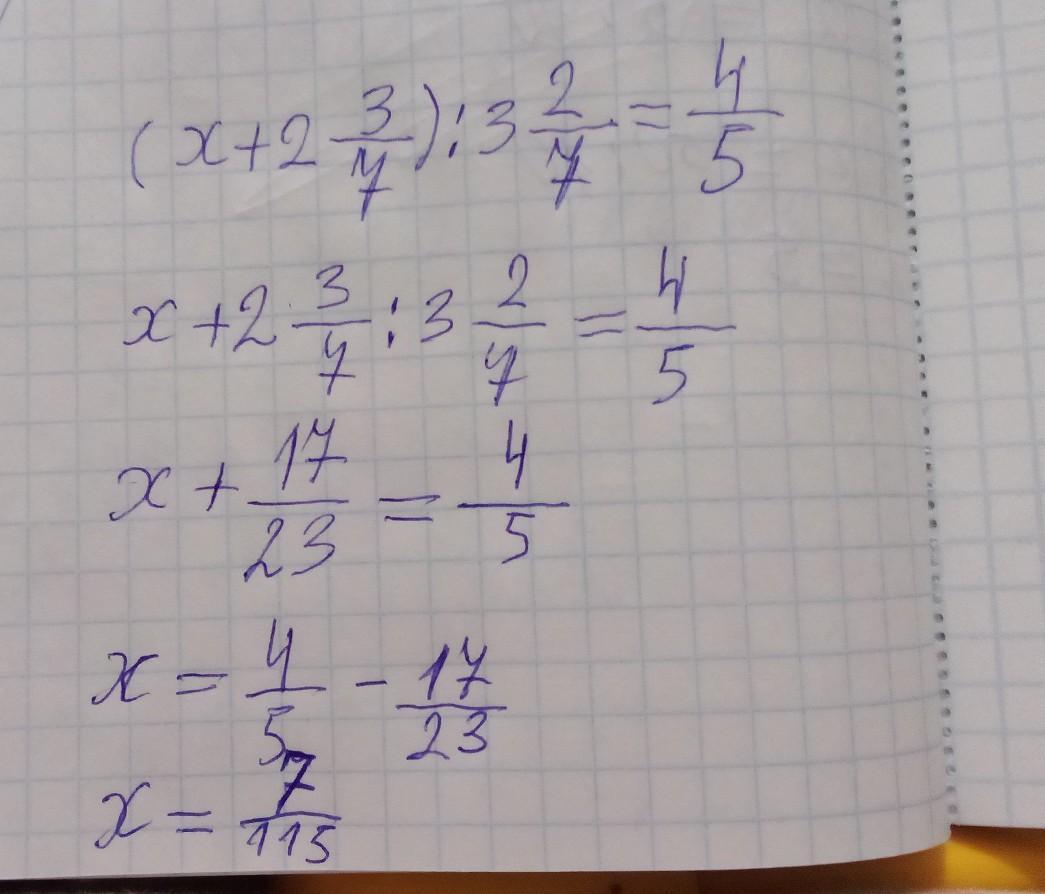 (x+2 3/7):3 2/7=4/5
x+2 3/7:3 2/7=4/5
x+17/23=4/5
x=4/5-17/23
x=7/115